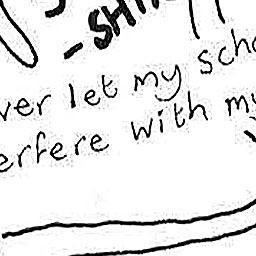 - SH
ver let my scho
erfere with my